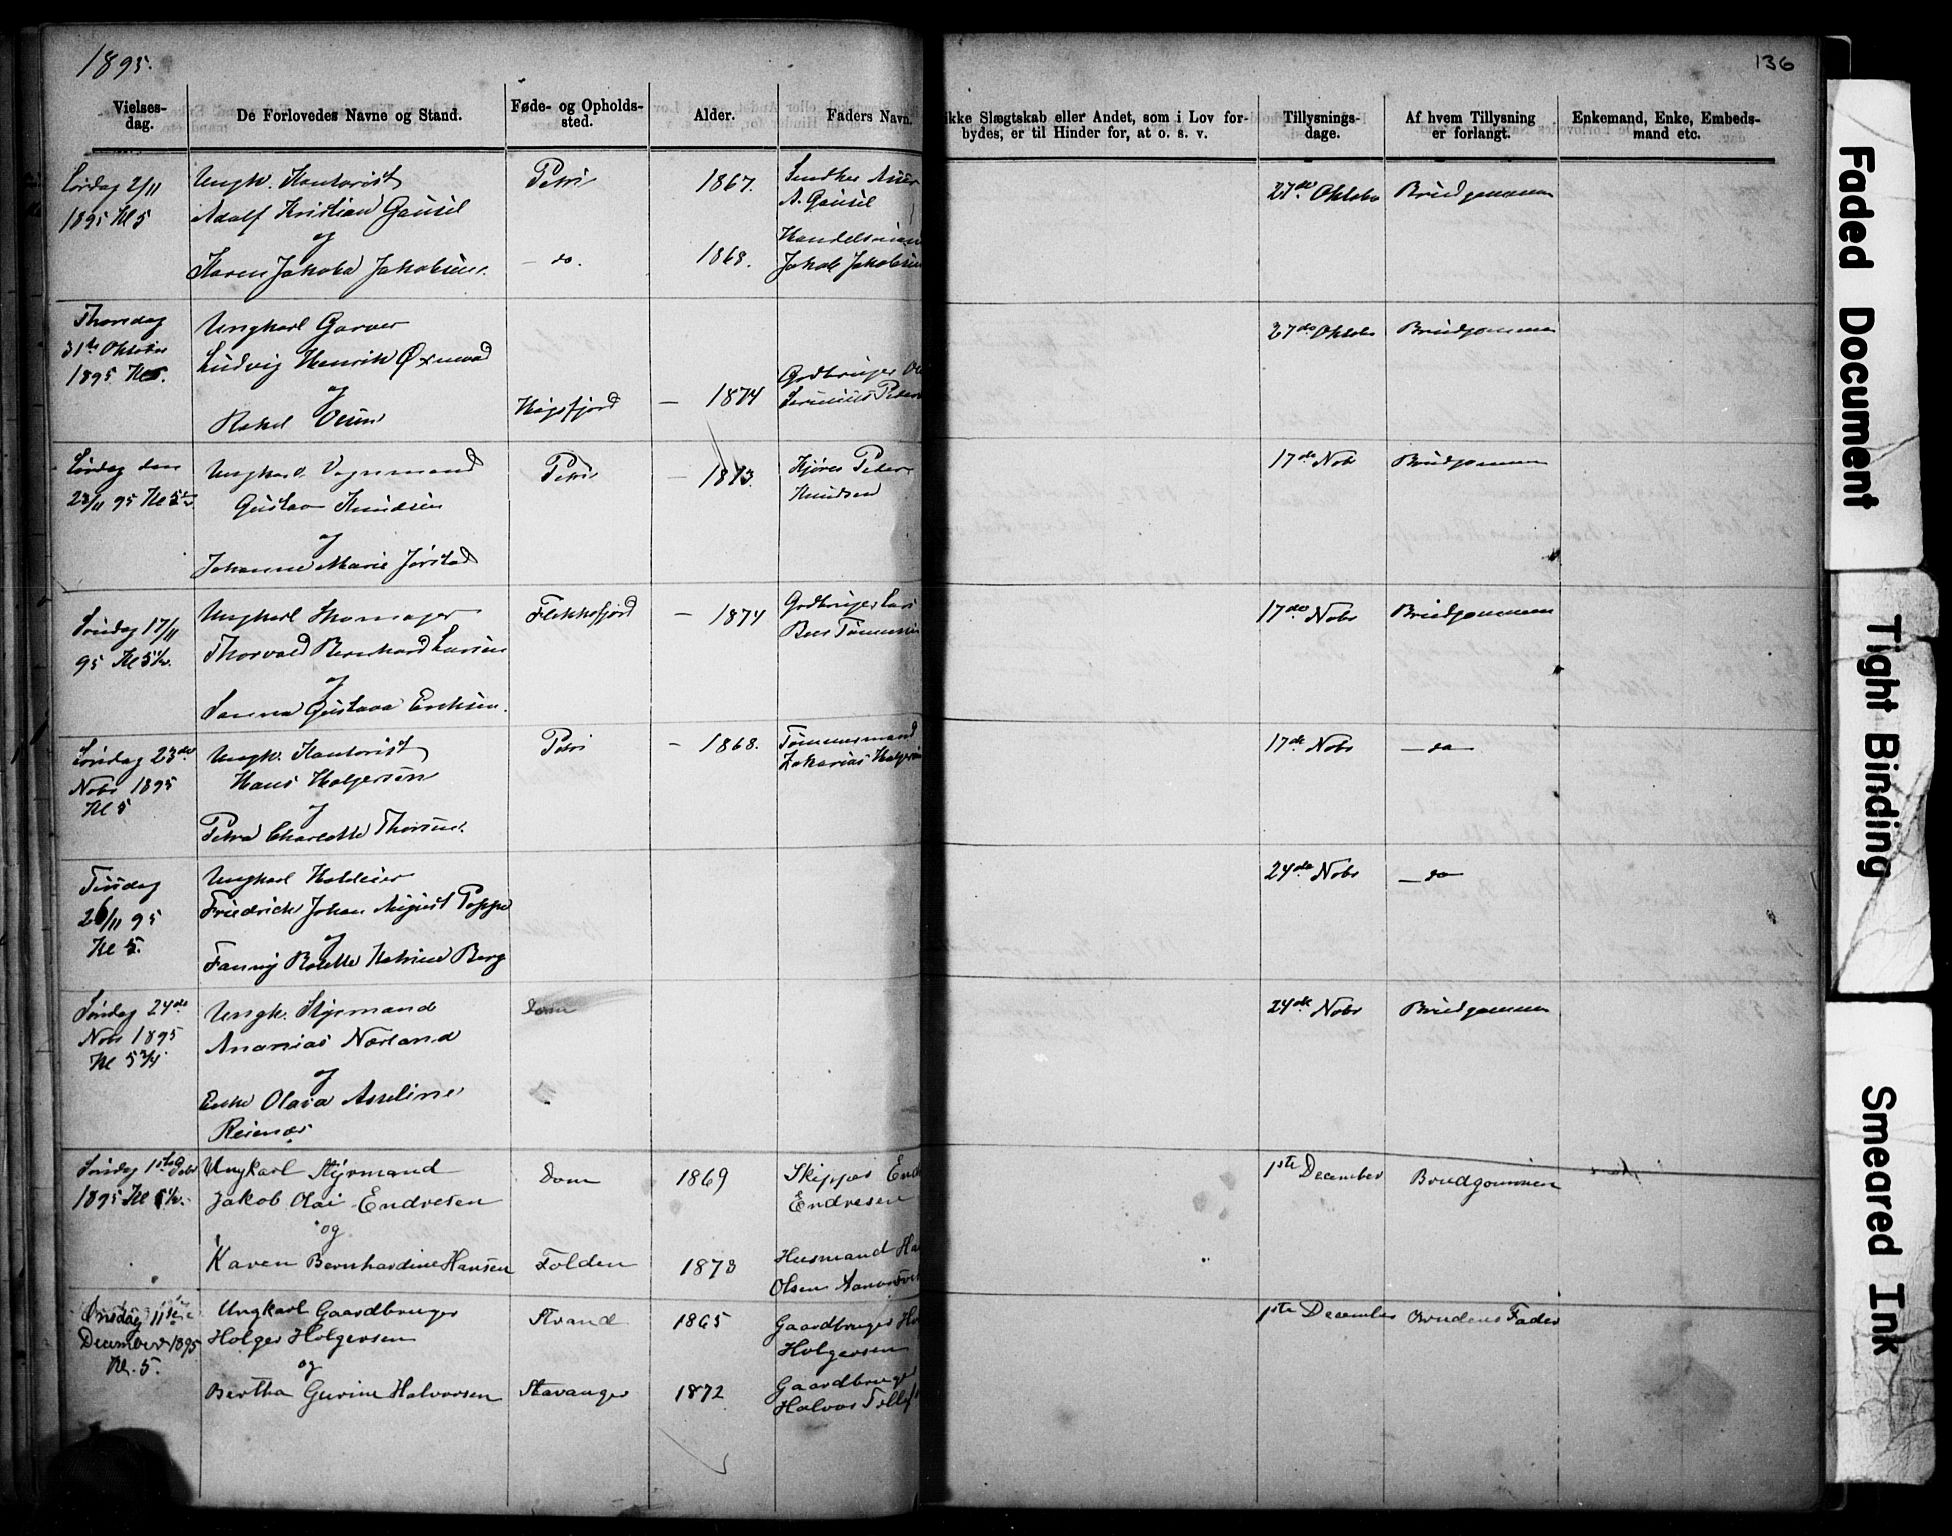 1895.
136
Vielses-
dag.
De Forlovedes Navne og Stand.
Føde- og Opholds-
sted.
Alder.
Faders Navn.
ikke Slægtskab eller Andet, som i Lov for-
bydes, er til Hinder for, at o. s. v.
Tillysnings-
dage.
Af hvem Tillysning
er forlangt.
Enkemand, Enke, Embeds-
mand etc.
Lørdag 2/11
1895 Kl 5
Ungk. Kontorist
Adolf Kristian Gausel
og
Karen Jakoba Jakobsen.
Petri
— do.
1867.
1868.
A. Gausel
Handelsman
Jakob Jakobsen
27de Oktober
Brudgommen
Thorsdag
31te Oktober
1895 Kl 5.
Ungkarl Garver
Ludvig Henrik Øxnevad
og
Rakel Olsen
Høgsfjord
— 1874
27de Oktober
Brudgommen
Lørdag den
23/11 95 Kl 5½
Ungkarl Vognmand
Gustav Knudsen
og
Johanne Marie Jørstad
Petri
— 1873.
Kjører Peder
Knudsen
17de Nobr
Brudgommen
Søndag 17/11
95 Kl 5½.
Ungkarl Skomager
Thorvald Bernhard Larsen
og
Sanna Gustava Eriksen.
Flekkefjord
— 1874
Grdbruger Lars
17de Nobr
Brudgommen
Lørdag 23de
Nobr 1895
Kl 5
Ungk. Kontorist
Hans Holgersen
og
Petra Charlotte Thorsen.
Petri
— 1868.
Tømmermand
Zakarias Holgersen
17de Nobr
— do —
Tirsdag
26/11 95
Kl 5.
Ungkarl Hotelier
Friedrich Johan August Poppe
og
Fanny Rosette Katrine Berg
24de Nobr
— do —
Søndag 24de
Nobr 1895
Kl 5 3/4
Ungk. Styrmand
Ananias Nærland
og
Enke Olava Asseline
Reienæs
Dom
24de Nobr
Brudgommen
Søndag 1ste Debr
1895 Kl 5½.
Ungkarl Styrmand
Jakob Olai Endresen
og
Karen Bernhardine Hansen
Dom
Folden
1869
1873
Skipper End
Endresen
Husmand Ha
Olsen
1ste December
Brudgommen
Onsdag 11te
December 1895
Kl. 5.
Ungkarl Gaardbruger
Holger Holgersen
og
Bertha Gurine Halvorsen
Strand
Stavanger
1865
1872
Gaardbruger Ho
Holgersen
Gaardbruger
Halvor Tollef
1ste December
Brudens Fader
Faded Document
Tight Binding
Smeared Ink